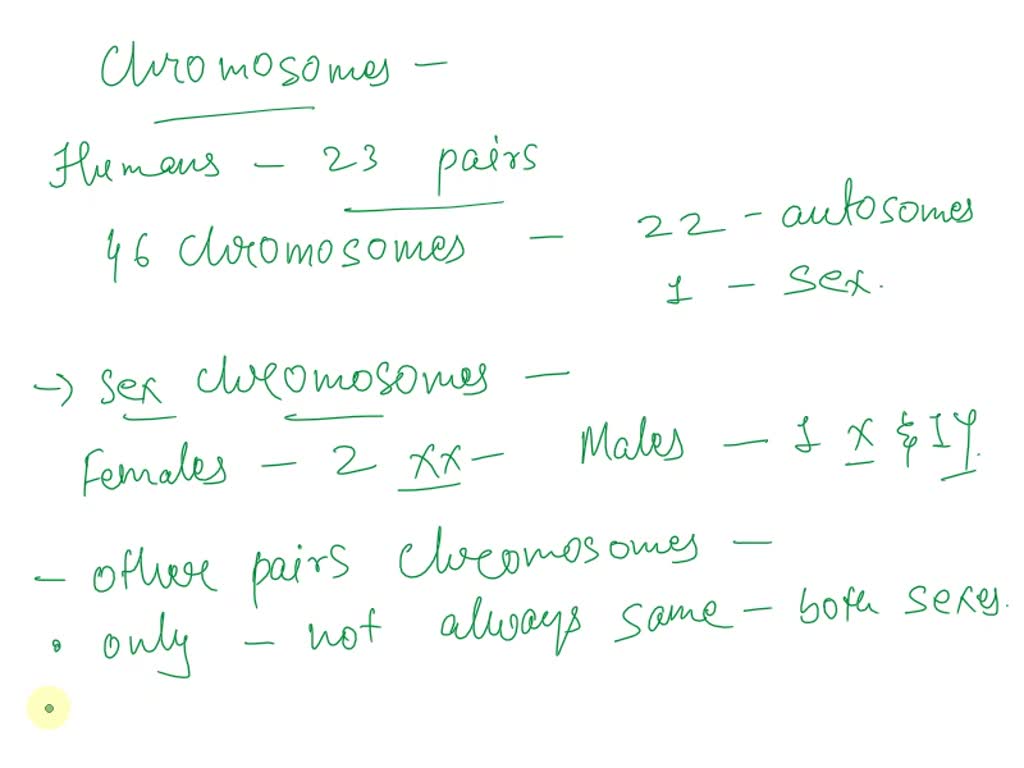 Chromosomes -
Humans - 23 pairs
46 chromosomes - 22 - autosomes
1 - sex.
→ sex chromosomes -
Females - 2 XX - Males - 1 X & 1 Y.
- other pairs chromosomes -
• only - not always same - both sexes.